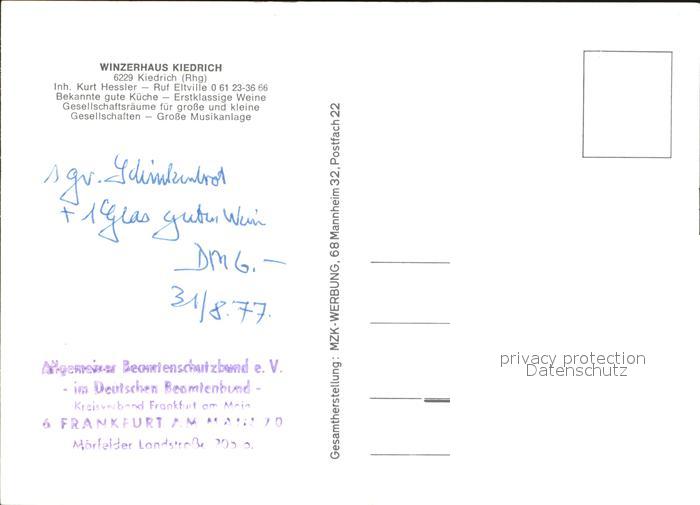 WINZERHAUS KIEDRICH
6229 Kiedrich (Rhg)
Inh. Kurt Hessler – Ruf Eltville 0 61 23-36 66
Bekannte gute Küche – Erstklassige Weine
Gesellschaftsräume für große und kleine
Gesellschaften – Große Musikanlage
1 gr. Schinkenbrot
+ 1 Glas guten Wein
DM 6.–
31/8.77.
Allgemeiner Beamtenschutzbund e. V.
- im Deutschen Beamtenbund -
Kreisverband Frankfurt am Main
6 FRANKFURT AM MAIN 70
Mörfelder Landstraße
Gesamtherstellung: MZK-WERBUNG, 68 Mannheim 32, Postfach 22
privacy protection
Datenschutz